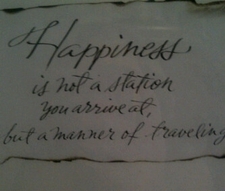 Happiness
is not a station
you arrive at,
but a manner of traveling